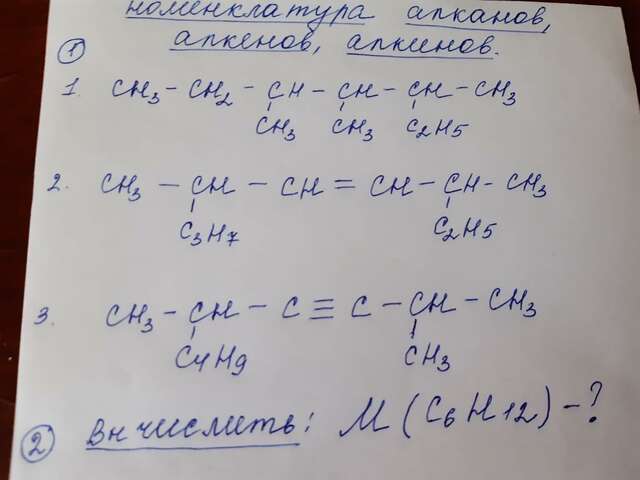 номенклатура алканов,
алкенов, алкинов.
①
1. CH3 - CH2 - CH - CH - CH - CH3
CH3 CH3 C2H5
2. CH3 - CH - CH = CH - CH - CH3
C3H7 C2H5
3. CH3 - CH - C ≡ C - CH - CH3
C4H9 CH3
② Вычислить: M (C6H12) - ?